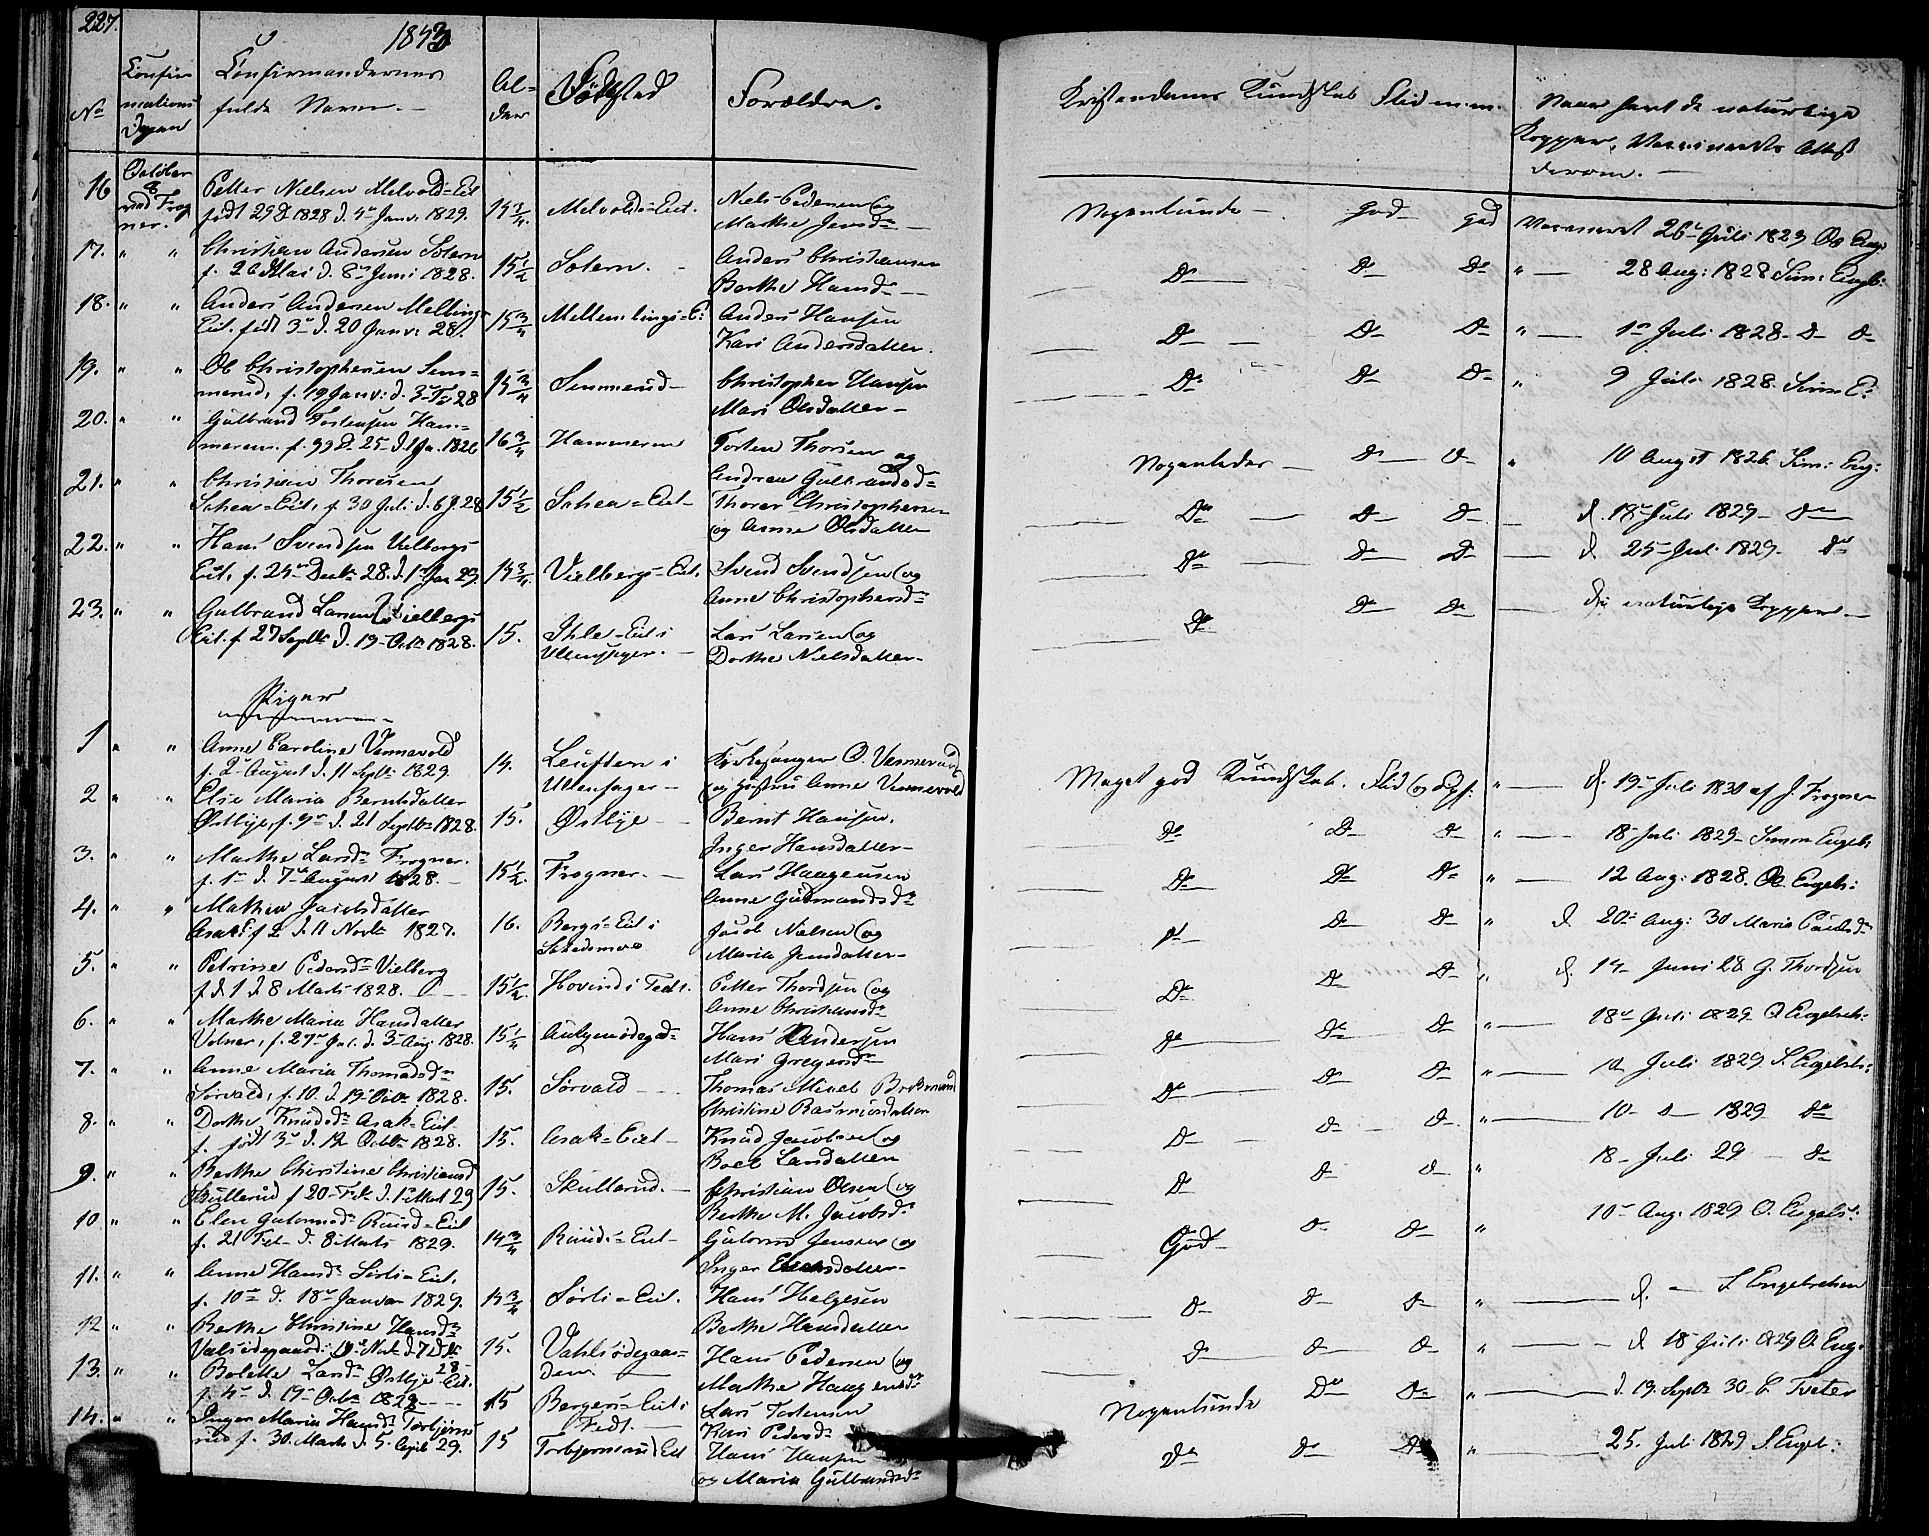 227.
1843
No
Confir
mations
Dagen
Confirmandernes
fulde Navne. —
Al-
der
Fødested
Forældre.
Kristendoms Kundskab Flid m.m.
Naar havt de naturlige
Kopper, Vaccinerede Attest
derom. —
16
October
8
ved Frog
ner.
Petter Nielsen Melvold-Eit
født 29 D 1828 d. 4de Janv. 1829.
14 3/4.
Melvolds-Eit.
Niels Pedersen og
Marthe Jensdr
Nogenlunde — god god
Vaccineret 26de Juli 1829 Ole Eng.
17. " "
Christian Andersen Solem
f. 26 Mai d. 8de Juni 1828.
15 1/2
Solem. —
Anders Christiansen
Berthe Hansdr —
Do Do Do
" — 28 Aug: 1828 Sim: Engb:
18. " "
Anders Andersen Mellings
Eit. født 3de d. 20 Janv: 28.
15 3/4
Mellemlings-E:
Anders Hansen
Kari Andersdatter.
Do — Do Do
" — 1de Juli 1828. Do Do
19. " "
Ole Christophersen Sem-
merud, f. 19 Janv: d. 3 Fe 28
15 3/4
Semmerud —
Christopher Hansen
Mari Olsdatter —
Do Do Do
" 9 Juli 1828. Sim E:
20. " "
Gulbrand Torstensen Ham-
meren. f. D. 25 d. 1 Ja. 1826
16 3/4
Hammeren
Torsten Thorsen og
Andrea Gulbrandsd-
Nogenledes — Do Do
" 10 August 1826. Sim: Eng:
21. " "
Christian Thoresen
Eit, f. 30 Juli d. 6 J. 28
15 1/2
Eit —
Thorer Christophersen
og Anne Olsdatter
Do — Do Do —
d. 18de Juli 1829 — Do
22. " "
Hans Svendsen Vielbergs
Eit, f. 24de Decb. 28. d. 1de Jan 29.
14 3/4.
Vielbergs-Eit.
Svend Svendsen og
Anne Christophersd-
Do — Do Do —
d. 25 Jul. 1829. Do
23. " "
Gulbrand Larsen Vielbergs
Eit. f 27 Septb. d. 19 Octb 1828.
15.
Ihle-Eit i
Ullensager. —
Lars Larsen og
Dorthe Nielsdatter —
Do Do Do —
De naturlige Kopper —
Piger
1 " "
Anne Caroline Vennevold
f. 2de August d. 11 Septb. 1829.
14.
Leuften i
Ullensager —
Kirkesanger O. Vennevold
og Hustru Anne Vennevold
Meget god Kundskab. Flid og Opf:
" — d. 19de Juli 1830 af J. Frogner
2 " "
Else Maria Berntsdatter
Østbye, f. 9de d. 21 Septb 1828.
15.
Østbye —
Bernt Hansen.
Inger Hansdatter —
Do Do Do
" — 18 Juli 1829 — Simon Engelb.
3. " "
Marthe Larsdr Frogner.
f. 1de d. 7de August 1828. —
15 1/2.
Frogner. —
Lars Haagensen
Anne Gudmundsdr
Do Do Do
" — 12 Aug: 1828. Ole Engels:
4. " "
Mathea Jacobsdatter
Asak: f 2 d. 11 Novb 1827.
16.
Bergs-Eit i
Skedsmoe
Jacob Nielsen og
Maria Jensdatter —
Do Do Do
" d 20de Aug: 30 Maria Paulsdr
5. " "
Petrine Pedersdr Vielberg
f d. 1 d 8 Marts 1828. —
15 1/2.
Hovind i Fedt.
Petter Thordsen og
Anne Christiansdr
Do Do Do
" d. 14 Juni 28 G. Thordsen
6. " "
Marthe Maria Hansdatter
Volner, f. 29de Jul. d. 3 Aug 1828.
15 1/4
Hans Andersen
Mari Gregersdr
Do Do Do
" — 18de Juli 1829 O Engelsch:
7. " "
Anne Maria Thomasdr
Sørvald, f. 10. d. 19 Octb 1828.
15.
Sørvald —
Thomas
Christine Rasmusdatter
Do Do Do
" — 12 Juli 1829 S. Engelsch:
8. " "
Dorthe Knudsdr Asak-Eit
f. født 3de d. 12 Octb 1828.
15.
Asak-Eit —
Knud Jacobsen og
Boel Larsdatter
Do — Do — Do
" — 10 — Do — 1829 Do
9. " "
Berthe Christine Christiansd
Skullerud f 20 Feb. d. 1de Mart 29
15.
Skullerud. —
Christian Olsen og
Berthe M. Jacobsdr
Do Do Do
" 18 — Juli 29 — Do
10 " "
Elen Gutormsdr Ruud-Eit
f. 21 Feb — d. 8 Marts 1829.
14 3/4
Ruuds-Eit —
Guttorm Jensen og
Inger —
God — Do Do
" 10de Aug. 1829 O. Engels:
11. " "
Anne Hansdr Sørli-Eit.
f. 10de d. 18de Januar 1829.
14 3/4
Sørli-Eit.
Hans Helgesen
Berthe Hansdatter
Do Do Do
" — d. — S Engebretsen
12 " "
Berthe Christine Hansdr
Valsødegaard: 10de Novb d 7 Decb
28
15.
Vahlsødegaar-
den —
Hans Pedersen og
Marthe Haagensdr
Do Do Do
" — d 18 Juli 1829 O. Eng.
13. " "
Bolette Larsdr Østbye-Eit.
f. 4de d. 19 Octb 1828 —
15
Bergers-Eit i
Fedt. —
Lars Torstensen
Kari Pedersdr
Nogenlunde Do Do
" — d. 19. Septb 30. C Tveter
14. " "
Inger Maria Hansdr Torbjørns
rud f. 30. Marts d. 5. April 29.
15
Torbjørnsrud Eit
Hans Hansen
og Maria Gulbrandsdr
Do Do Do
" — 25. Juli 1829 S. Engel: